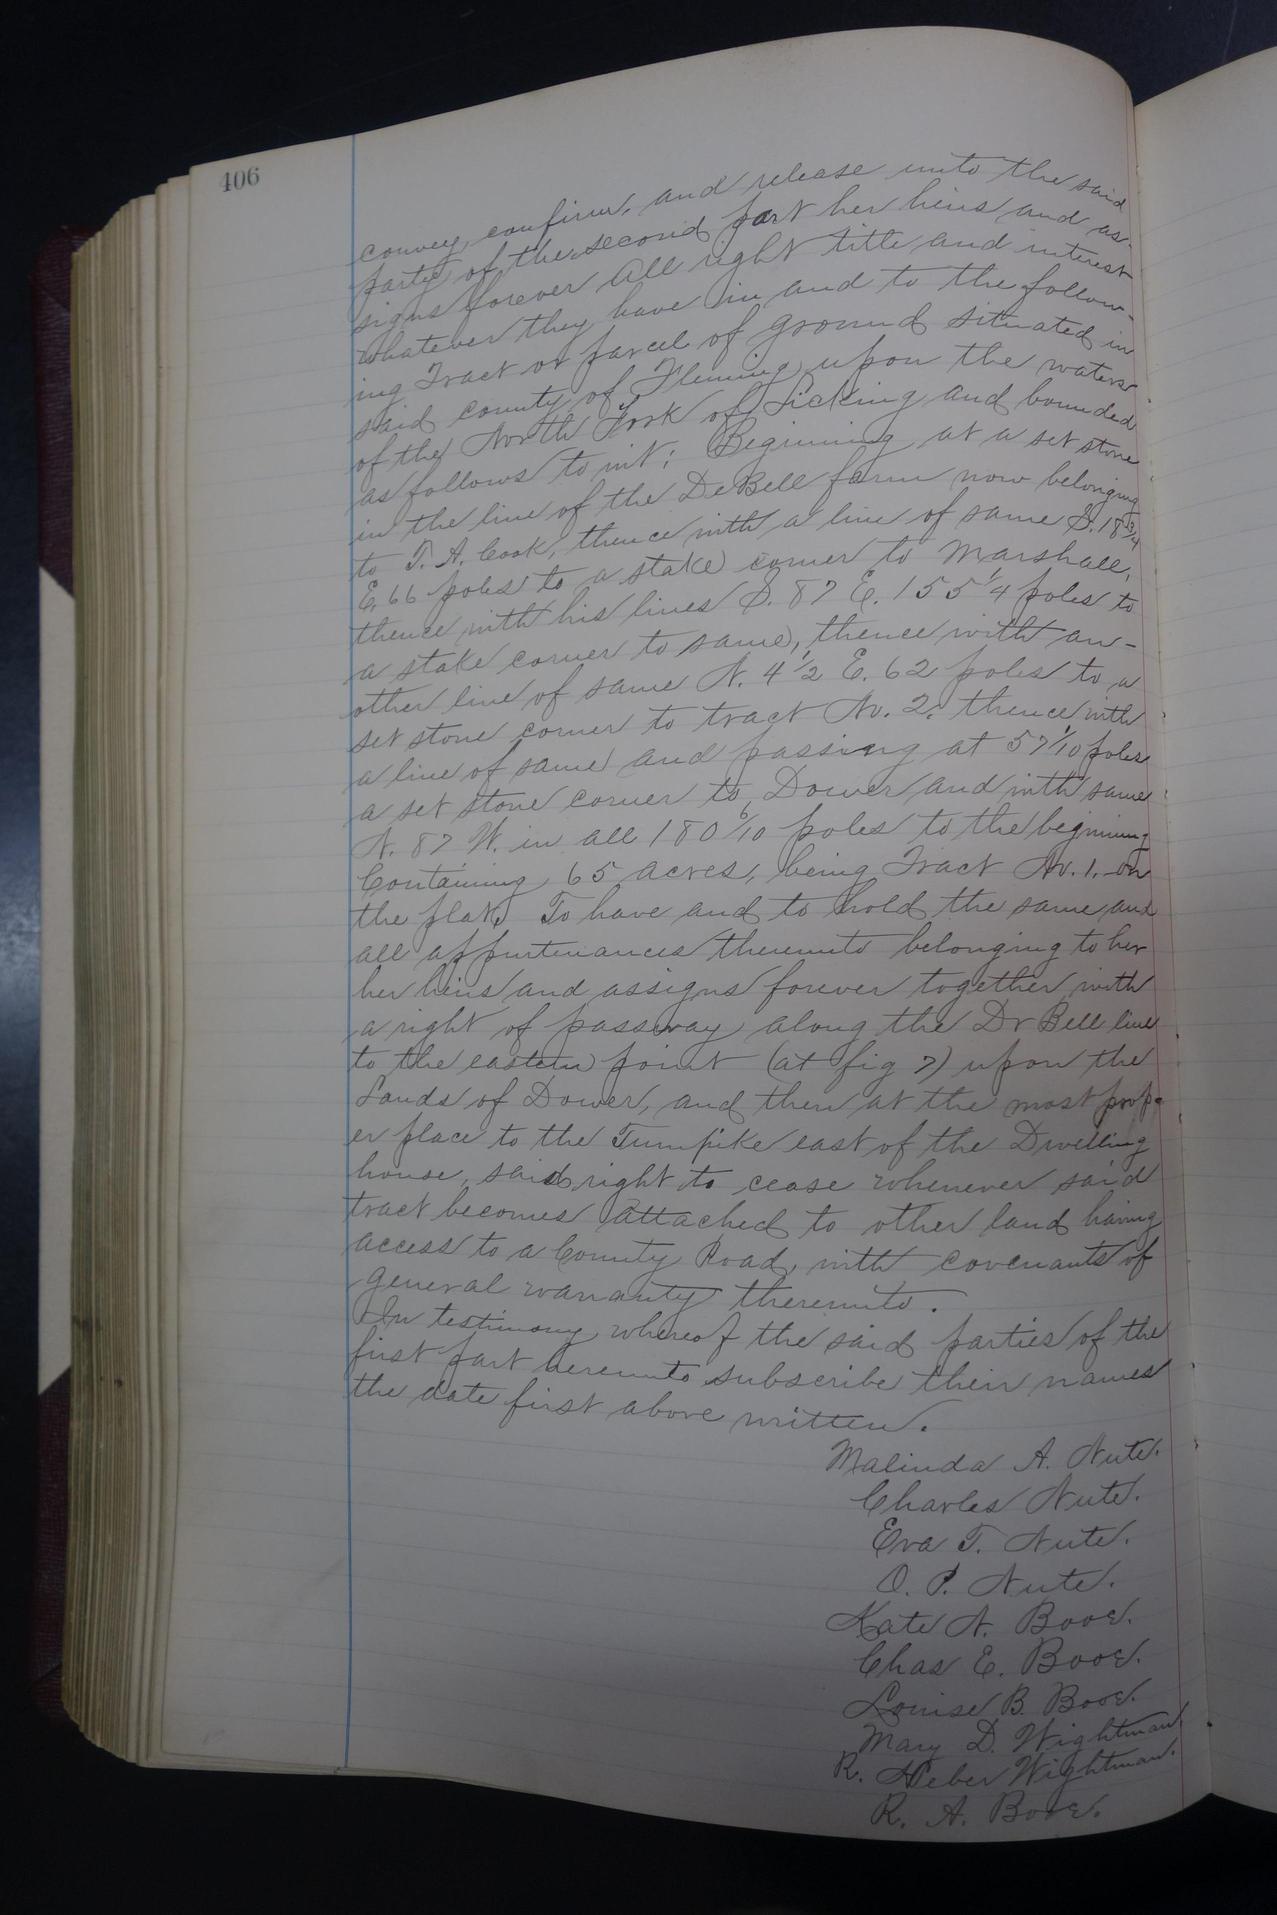 406
convey, confirm, and release unto the said
party of the second part her heirs and as-
signs forever all right title and interest
whatever they have in and to the follow-
ing Tract or parcel of ground situated in
said county of Fleming upon the waters
of the North Fork of Licking and bounded
as follows to wit; Beginning at a set stone
in the line of the DeBell farm now belonging
to T. A. Cook, thence with a line of same S. 18 3/4
E. 66 poles to a stake corner to Marshall,
thence with his lines S. 87 E. 155 1/4 poles to
a stake corner to same, thence with an-
other line of same N. 4 1/2 E. 62 poles to a
set stone corner to tract No. 2. thence with
a line of same and passing at 57 1/10 poles
a set stone corner to Dower and with same
N. 87 W. in all 180 6/10 poles to the beginning
Containing 65 acres, being Tract No. 1. on
the plat. To have and to hold the same and
all appurtenances thereunto belonging to her
her heirs and assigns forever together with
a right of passway along the De Bell line
to the eastern point (at fig 7) upon the
Lands of Dower, and then at the most prop-
er place to the Turnpike east of the Dwelling
house, said right to cease whenever said
tract becomes attached to other land having
access to a County Road, with covenants of
general warranty thereunto.
In testimony whereof the said parties of the
first part hereunto subscribe their names
the date first above written.
Malinda A. Nute.
Charles Nute.
Eva T. Nute.
O. P. Nute.
Kate N. Booe.
Chas E. Booe.
Louise B. Booe.
Mary D. Wightman.
R. Heber Wightman.
R. A. Booe.